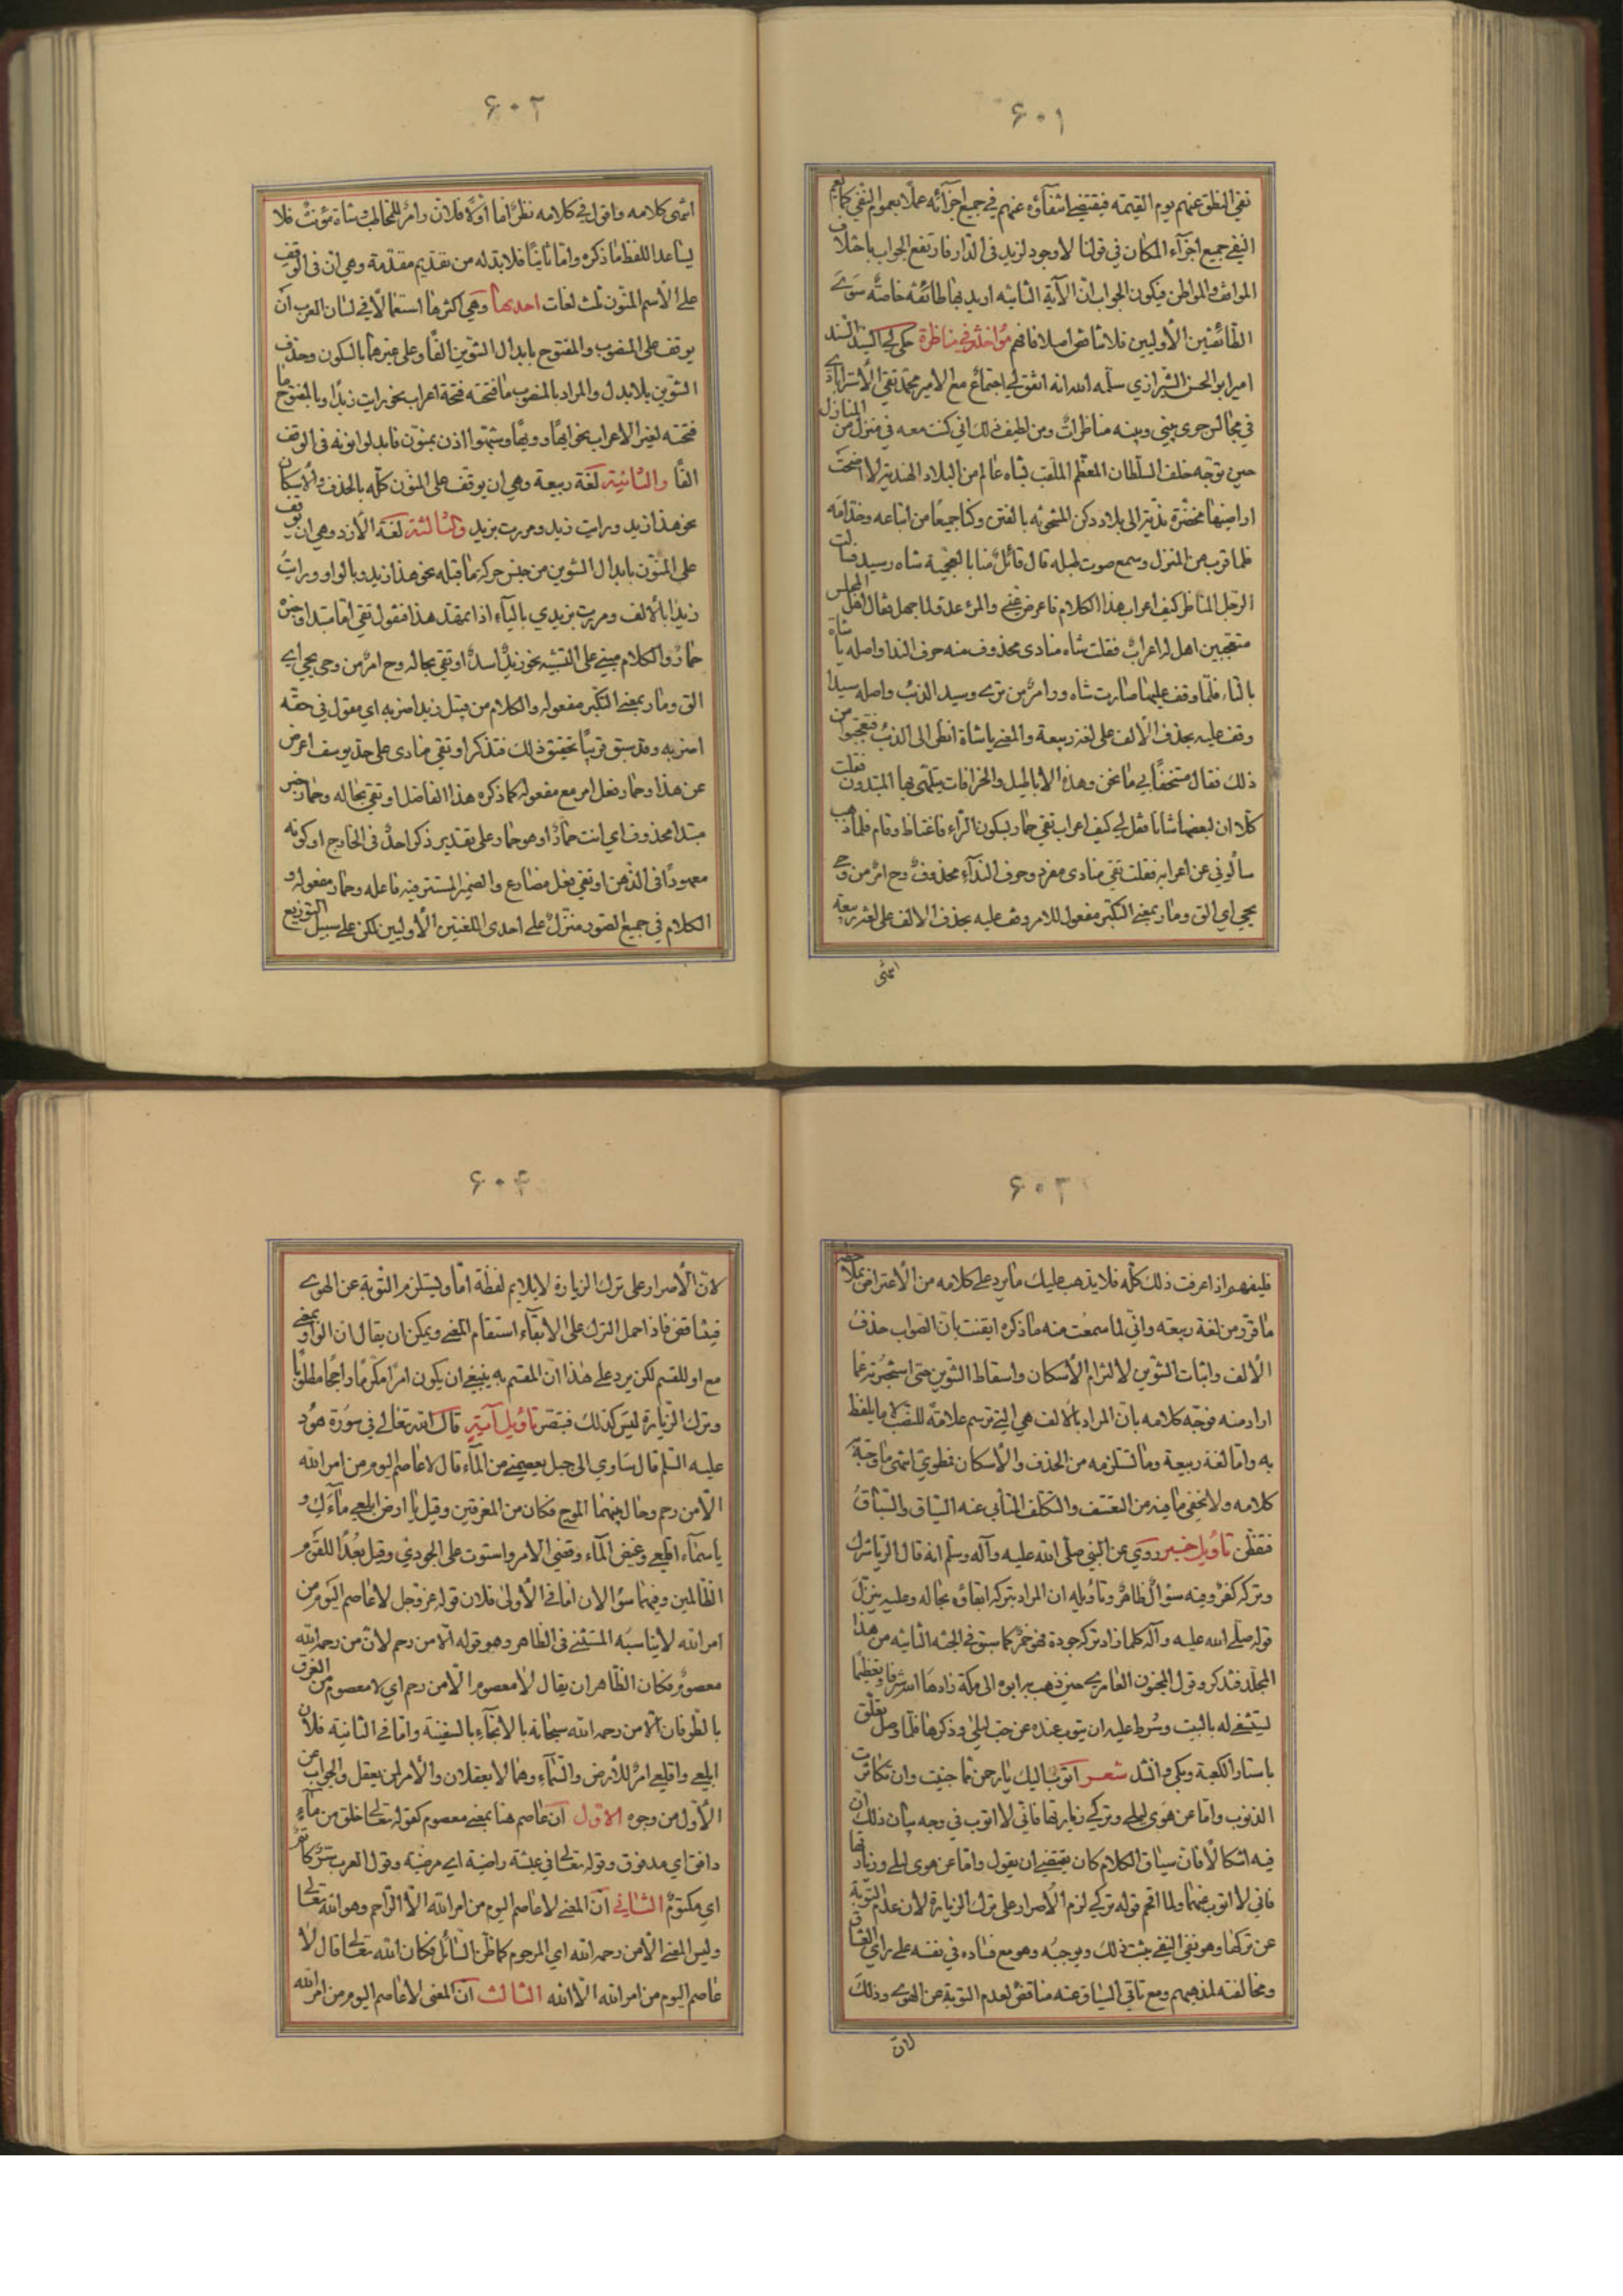 ۶۰۱
نفي النطق عنهم يوم القيمة فيقتضي انتفاؤه عنهم في جميع اجزائه عملا بعموم النفي كما يعم
النفي جميع اجزآء المكان في قولنا لا وجود لزيد في الدار فارتفع الجواب باختلاف
المواقف والمواطن فيكون الجواب ان الآية الثانيه اريد بها طائفة خاصة سوى
الطائفتين الأوليين فلا تناقض اصلا فافهم مؤاخذة في مناظرة حكى لي السيد السند
امير ابو الحسن الشيرازي سلمه الله انه اتفق لي اجتماع مع الامير محمد تقي الاسترابادي
في مجالس جرى بيني وبينه مناظرات ومن لطيف ذلك اني كنت معه في منزل من المنازل
حين توجه خلف السلطان المعظم الملقب بشاه عالم من البلاد الهندية لا اضحت
اراضيها مخضرة بذيته الى بلاد دكن المشحونه بالفتن وكنا جميعا من اتباعه وخدامه
فلما قرب من المنزل وسمع صوت طبله قال قائل منا بالعجمية شاه رسيد فقالت
الرجل المناظر كيف اعراب هذا الكلام فاعرض عني والمرء عدو لما جهل فقال اهل المجلس
متعجبين اهل له اعراب فقلت شاه منادى محذوف منه حرف الندا واصله يا شاة
بالتاء فلما وقف عليها صارت شاه ورا امر من ترى وسيد الذئب واصله سيدا
وقف عليه بحذف الألف على لغة ربيعة والمعنى يا شاة انظري الى الذئب فتعجبوا من
ذلك فقال مستخفا بي ما نحن وهذه الاباطيل والخرافات يتلهى بها المبتدون فقلت
كلا ان لبعضها شانا فقل لي كيف اعراب تقي حمار بسكون الراء فاغتاظ وقام فلما ذهب
سألوني عن اعرابه فقلت تقي منادى مفرد وحرف النداء محذوف وح امر من وحى
يحي اي الق ومار بمعنى التكبر مفعول للامر وقف عليه بحذف الالف على لغة ربيعة
انتهى
۶۰۲
انتهى كلامه واقول في كلامه نظر اما اولا فلان را امر للمخاطب وشاة مؤنث فلا
يساعد اللفظ ما ذكره واما ثانيا فلا بد له من تقديم مقدمة وهي ان في الوقف
على الاسم المنون ثلث لغات احديها وهي اكثرها استعمالا في لسان العرب ان
يوقف على المنصوب والمفتوح بابدال التنوين الفا وعلى غيرهما بالسكون وحذف
التنوين بلا بدل والمراد بالمنصوب ما فتحته فتحة اعراب نحو رايت زيدا وبالمفتوح ما
فتحته لغير الاعراب نحو ايها وويها وشبهوا اذن بمنون فابدلوا نونه في الوقف
الفا والثانية لغة ربيعة وهي ان يوقف على المنون كله بالحذف والاسكان
نحو هذا زيد ورايت زيد ومررت بزيد والثالثة لغة الازد وهي ان يوقف
على المنون بابدال التنوين من جنس حركة ما قبله نحو هذا زيدو بالواو ورايت
زيدا بالالف ومررت بزيدي بالياء اذا تمهد هذا فنقول تقي اما مبتدا وخبره
حمار والكلام مبني على التشبيه نحو زيد اسد او تقي بحاله وح امر من وحى يحي اي
الق ومار بمعنى التكبر مفعوله والكلام من قبيل زيد اضربه اي مقول في حقه
اضربه وقد سبق قريبا تحقيق ذلك فتذكر او تقي منادى على حد يوسف اعرض
عن هذا وحمار فعل امر مع مفعوله كما ذكره هذا الفاضل او تقي بحاله وحمار خبر
مبتدا محذوف اي انت حمار او هو حمار وعلى تقدير ذكر احد في الخارج او كونه
معهودا في الذهن او تقي فعل مضارع والضمير المستتر فيه فاعله وحمار مفعوله و
الكلام في جميع الصور منزل على احدى اللغتين الأوليين لكن على سبيل التوزيع
۶۰۳
فليفهم اذا عرفت ذلك كله فلا يذهب عليك ما يرد على كلامه من الاعتراض بملاحظة
ما قرر من لغة ربيعه واني لما سمعت منه ما ذكره ايقنت بان الصواب حذف
الألف واثبات التنوين لا التزام الأسكان واسقاط التنوين حتى استجزته عما
اراد منه فوجه كلامه بان المراد بالالف هي التي ترسم علامة للنصب لا ما يلفظ
به واما لغة ربيعة وما تستلزمه من الحذف والأسكان فطوي انتهى ما وجه به
كلامه ولا يخفى ما فيه من التعسف والتكلف المتابي عنه السياق والسباق
فتفطن تأويل خبر روي عن النبي صلى الله عليه وآله وسلم انه قال الرياء شرك
وتركه كفر وفيه سؤال ظاهر وتاويله ان المراد بتركه ابقاؤه بحاله وعليه ينزل
قوله صلى الله عليه وآله كلما زاد تركه جودة فهو خمر كما سبق في الجثه الثانيه من هذا
المجلد فتذكر وقول المجنون العامري حين ذهب به ابوه الى مكة زادها الله شرفا وتعظيما
ليستشفي له بالبيت وشرط عليه ان يتوب عنده عن حب ليلى وذكرها فلما وصل تعلق
باستار الكعبة وبكى وانشد شعر اتوب اليك يا رحمن مما جنيت وان تكاثرت
الذنوب واما عن هوى ليلى وتركي زيارتها فاني لا اتوب في وجه بيان ذلك ان
فيه اشكالا فان سياق الكلام كان يقتضي ان يقول واما عن هوى ليلى وزيارتها
فاني لا اتوب عنهما ولما اقحم قوله تركي لزم الأصرار على ترك الزيارة لان عدم التوبة
عن تركها وهو نفي النفي يثبت ذلك ويوجبه وهو مع فساده في نفسه على راي العشاق
ومخالفته لمذهبهم ومع تأبي السياق عنه مناقض لعدم التوبة عن الهوى وذلك
لان
۶۰۴
لان الأصرار على ترك الزيارة لا يلايم لفظة اما ويستلزم التوبة عن الهوى
فيتناقض فاذا حمل الترك على الابقاء استقام المعنى ويمكن ان يقال ان الواو بمعنى
مع او للقسم لكن يرد على هذا ان المقسم به ينبغي ان يكون امرا مكرما راجحا مطلوبا
وترك الزيارة ليس كذلك فتبصر تأويل آية قال الله تعالى في سورة هود
عليه السلم قال ساوي الى جبل يعصمني من المآء قال لا عاصم اليوم من امر الله
الا من رحم وحال بينهما الموج فكان من المغرقين وقيل يا ارض ابلعي مآءك و
ياسمآء اقلعي وغيض المآء وقضي الامر واستوت على الجودي وقيل بعدا للقوم
الظالمين وفيهما سؤالان اما في الأولى فلان قوله عز وجل لا عاصم اليوم من
امر الله لا يناسبه المستثنى في الظاهر وهو قوله الا من رحم لان من رحمه الله
معصوم فكان الظاهر ان يقال لا معصوم الا من رحم اي لا معصوم من الغرق
بالطوفان الا من رحمه الله سبحانه بالانجآء بالسفينة واما في الثانية فلان
ابلعي واقلعي امر للأرض والسمآء وهما لا يعقلان والأمر لمن يعقل والجواب عن
الأول من وجوه الاول ان عاصم هنا بمعنى معصوم كقوله تعالى خلق من مآء
دافق اي مدفوق وقوله تعالى في عيشة راضية اي مرضية وقول العرب سر كاتم
اي مكتوم الثاني ان المعنى لا عاصم اليوم من امر الله الا الراحم وهو الله تعالى
وليس المعنى الا من رحمه الله اي المرحوم كما ظن السائل فكان الله تعالى قال لا
عاصم اليوم من امر الله الا الله الثالث ان المعنى لا عاصم اليوم من امر الله